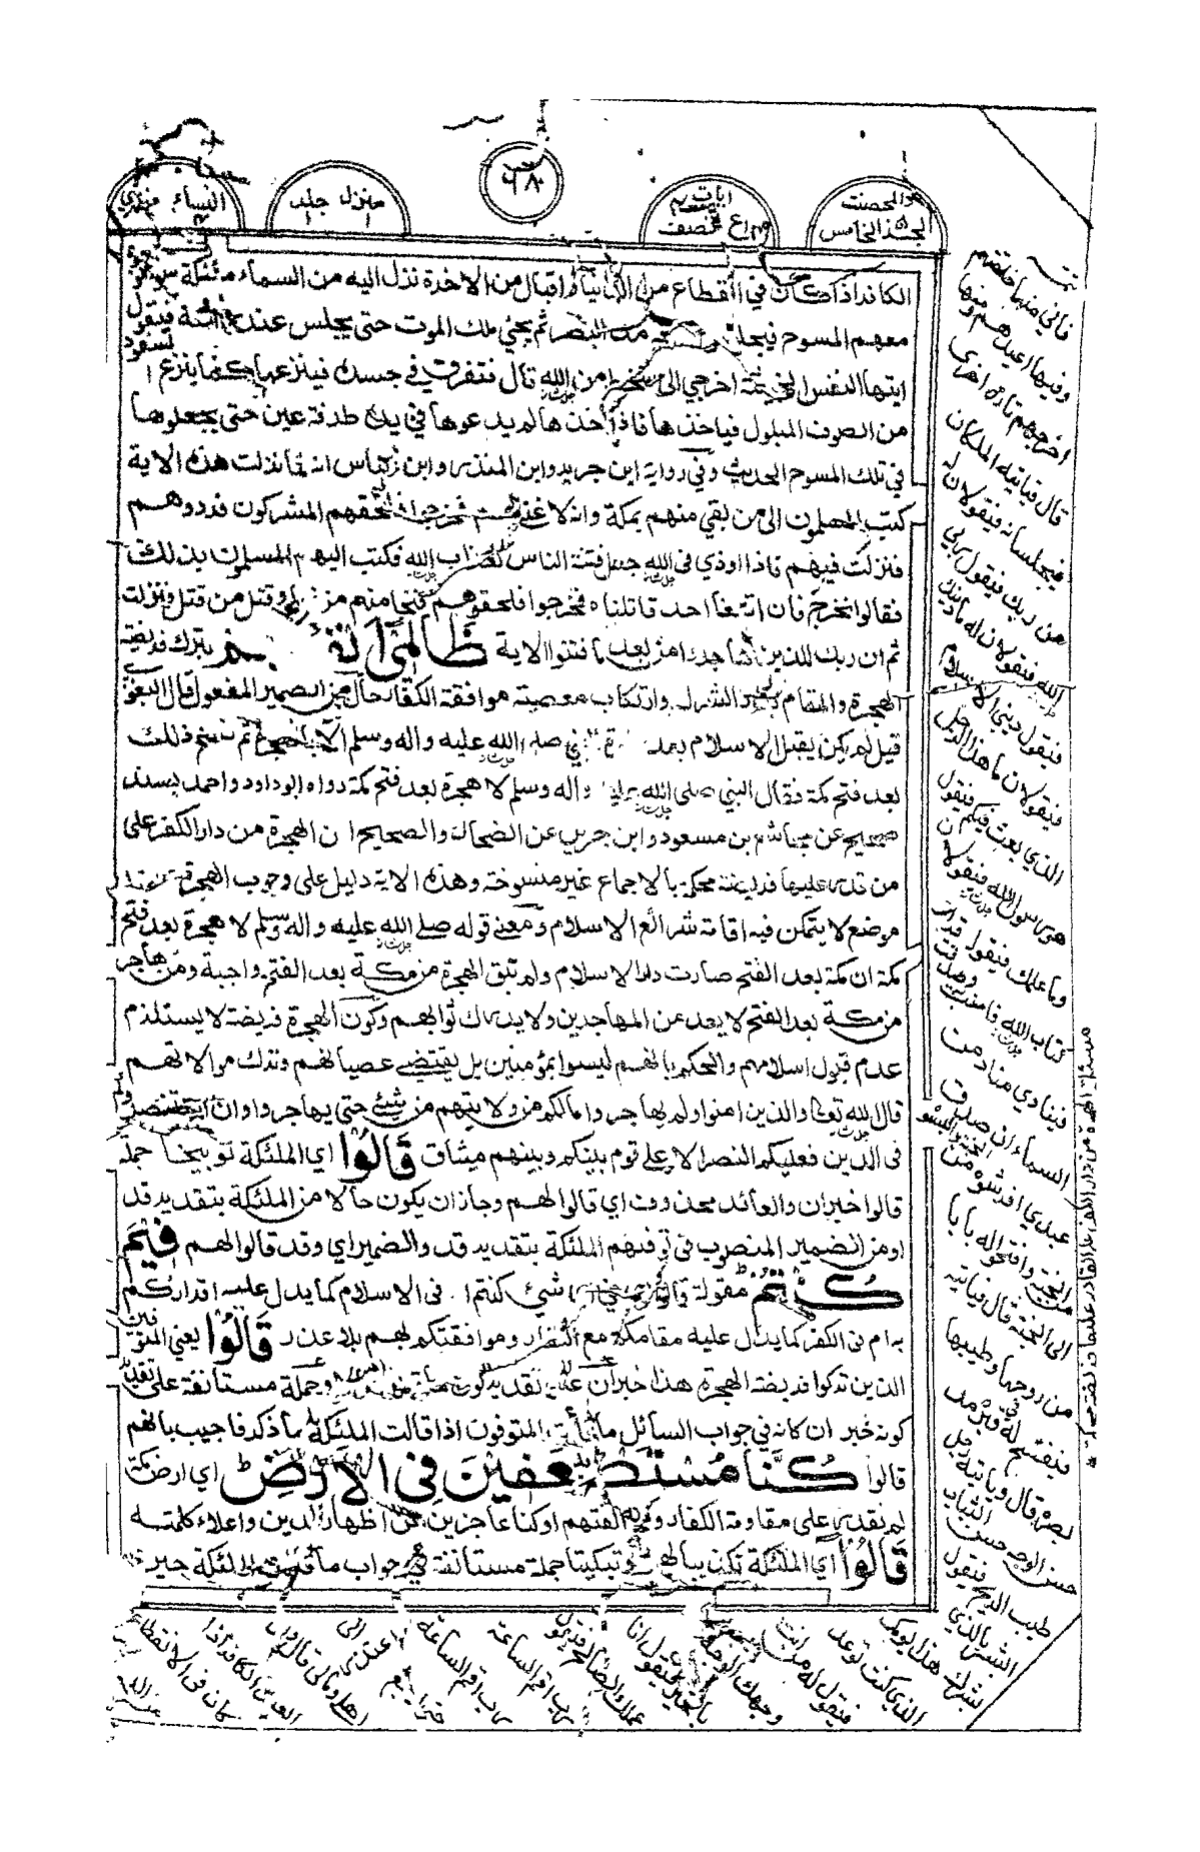 والمحصنت
الجزء الخامس
٦٨٠
منزل
جلد
النساء
الكافر اذا كان في انقطاع من الدنيا واقبال من الاخرة نزل اليه من السماء ملئكة
معهم المسوح فيجلسون منه مد البصر ثم يجئ ملك الموت حتى يجلس عند فيقول
ايتها النفس الخبيثة اخرجي الى سخط من الله قال فتفرق في جسده فينتزعها كما ينزع
من الصوف المبلول فياخذها فاذا أخذها لم يدعوها في يده طرفة عين حتى يجعلوها
في تلك المسوح الحديث وفي رواية ابن جرير وابن المنذر وابن عباس انه لما نزلت هذه الاية
كتب المسلمون الى من بقي منهم بمكة وانه لا عذر لهم فخرجوا فلحقهم المشركون فردوهم
فنزلت فيهم فاذا اوذي في الله جعل فتنة الناس كعذاب الله فكتب اليهم المسلمون بذلك
فقالوا نخرج فان اتبعنا احد قاتلناه فخرجوا فلحقوهم فنجا منهم من نجا وقتل من قتل ونزلت
ثم ان ربك للذين هاجروا من بعد ما فتنوا الاية ظَالِمِيۤ اَنْفُسِهِمْ بترك فريضة
الهجرة والمقام بدار الشرك وارتكاب معصية موافقة الكفار حال من الضمير المفعول قال البغوي
قيل لم يكن يقبل الاسلام بعد هجرة النبي صلى الله عليه واله وسلم الا بالهجرة ثم نسخ ذلك
بعد فتح مكة فقال النبي صلى الله عليه واله وسلم لا هجرة بعد فتح مكة رواه ابوداود واحمد بسند
صحيح عن مجاشع بن مسعود وابن جرير عن الضحاك والصحيح ان الهجرة من دار الكفر على
من قدر عليها فريضة محكمة بالاجماع غير منسوخة وهذه الاية دليل على وجوب الهجرة من
موضع لا يتمكن فيه اقامة شرائع الاسلام ومعنى قوله صلى الله عليه واله وسلم لا هجرة بعد فتح
مكة ان مكة بعد الفتح صارت دار الاسلام ولم تبق الهجرة من مكة بعد الفتح واجبة ومن هاجر
من مكة بعد الفتح لا يعد من المهاجرين ولا يدرك ثوابهم وكون الهجرة فريضة لا يستلزم
عدم قبول اسلامهم والحكم بانهم ليسوا بمؤمنين بل يقتضي عصيانهم وترك موالاتهم
قال الله تعالى والذين امنوا ولم يهاجروا مالكم من ولايتهم من شئ حتى يهاجروا وان استنصروكم
فى الدين فعليكم النصر الا على قوم بينكم وبينهم ميثاق قَالُوْا اي الملئكة توبيخا جملة
قالوا خبر ان والعائد محذوف اي قالوا لهم وجاز ان يكون حالا من الملئكة بتقدير قد
او من الضمير المنصوب فى توفهم الملئكة بتقدير قد والضمير اي وقد قالوا لهم فِيْمَ
كُنْتُمْ مقولة قالوا اي في اي شئ كنتم فى الاسلام كما يدل عليه اقراركم
به ام فى الكفر كما يدل عليه مقامكم مع الكفار وموافقتكم لهم بلا عذر قَالُوْا يعني المتوفين
الذين تركوا فريضة الهجرة هذا خبر ان على تقدير كون وجملة مستانفة على تقدير
كونه خبر ان كانه في جواب السائل ما المتوفون اذا قالت الملئكة ما ذكر فاجيب بانهم
قالوا كُنَّا مُسْتَضْعَفِيْنَ فِى الْاَرْضِ ط اي ارض مكة
لم نقدر على مقاومة الكفار ومخالفتهم او كنا عاجزين عن اظهار الدين واعلاء كلمته
قَالُوْا اي الملئكة تكذيبا لهم وتبكيتا جملة مستانفة في جواب ما قالت الملئكة حين
فاني منها خلقتهم
وفيها اعيدهم ومنها
اخرجهم تارة اخرى
قال فياتيه الملكان
فيجلسانه فيقولان له
من ربك فيقول ربي
الله فيقولان له ما دينك
فيقول ديني الاسلام
فيقولان ما هذا الرجل
الذي بعث فيكم فيقول
هو رسول الله فيقولان
وما علمك فيقول قرات
كتاب الله فامنت به وصدقت
فينادي مناد من
السماء ان صدق
عبدي افرشوه من
الجنة وافتحوا له بابا
الى الجنة قال فياتيه
من روحها وطيبها
فيفتح له في قبره مد
بصره قال وياتيه رجل
حسن الوجه حسن الثياب
طيب الريح فيقول
ابشر بالذي
يسرك هذا يومك
الذي كنت توعد
فيقول له من انت
وجهك الوجه
بالخير فيقول انا
عملك الصالح فيقول
رب اقم الساعة
رب اقم الساعة
حتى ارجع الى
اهلي ومالي قال وان
العبد الكافر اذا
كان في الانقطاع
مسئلة الهجرة من دار الكفر على القادر عليها فريضة محكمة